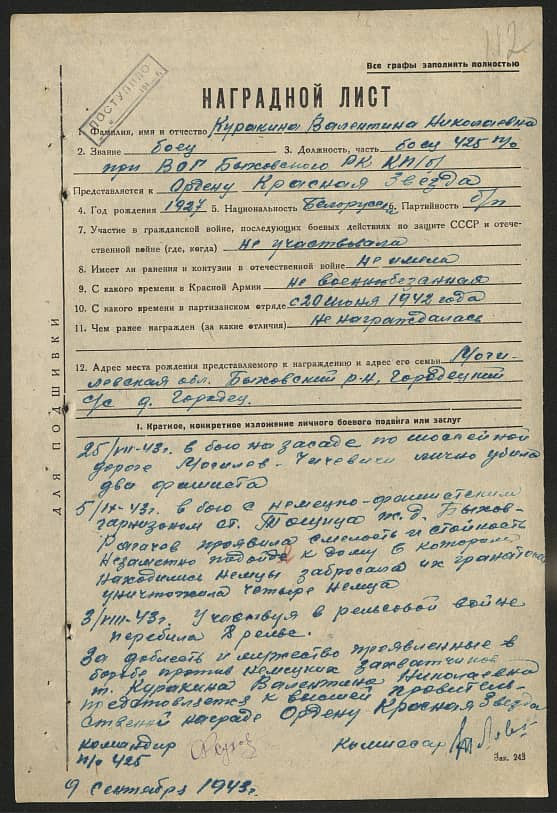 112
Все графы заполнять полностью
ПОСТУПИЛО
НАГРАДНОЙ ЛИСТ
1. Фамилия, имя и отчество Куракина Валентина Николаевна
2. Звание боец 3. Должность, часть боец 425 п/о
при ВОГ Быховского РК КП/б/
Представляется к Ордену Красная Звезда
4. Год рождения 1927 5. Национальность Белорусска Партийность б/п
7. Участие в гражданской войне, последующих боевых действиях по защите СССР и отече-
ственной войне (где, когда) не участвовала
8. Имеет ли ранения и контузии в отечественной войне не имела
9. С какого времени в Красной Армии не военнобязанная
10. С какого времени в партизанском отряде с 20 июня 1942 года
11. Чем ранее награжден (за какие отличия) не награждалась
12. Адрес места рождения представляемого к награждению и адрес его семьи Моги-
левская обл. Быховский р-н, Городецкий
с/с д. Городец.
ДЛЯ ПОДШИВКИ
I. Краткое, конкретное изложение личного боевого подвига или заслуг
25/VIII-43г. в бою на засаде по шоссейной
дороге Могилев-Чичевичи лично убила
два фашиста
5/IX-43г. в бою с немецко-фашистским
гарнизоном ст. Тощица ж.д. Быхов-
Рагачов проявила смелость и стойкость
Незаметно подойдя к дому в котором
находились немцы забросала их гранатами
уничтожила четыре немца
3/VIII-43г. Участвуя в рельсовой войне
перебила 2 рельс.
За доблесть и мужество проявленные в
борьбе против немецких захватчиков
т. Куракина Валентина Николаевна
представляется к высшей правитель-
ственной награде Ордену Красная Звезда
Командир
п/о 425
Комиссар
Зак. 243
9 сентября 1943г.